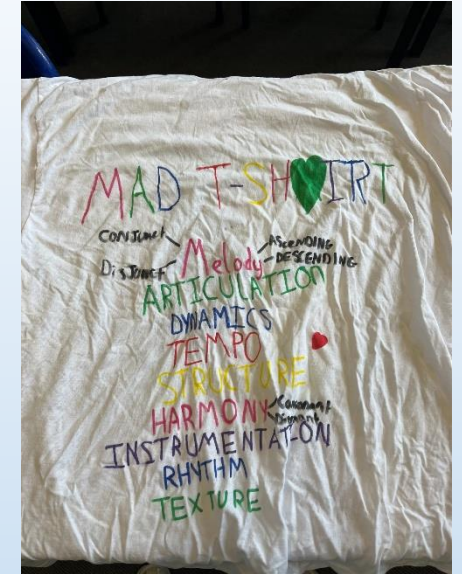 MAD T-SH♥IRT
CONJUNCT
DISJUNCT
Melody
ASCENDING
DESCENDING
ARTICULATION
DYNAMICS
TEMPO
STRUCTURE
HARMONY
INSTRUMENTATION
RHYTHM
TEXTURE